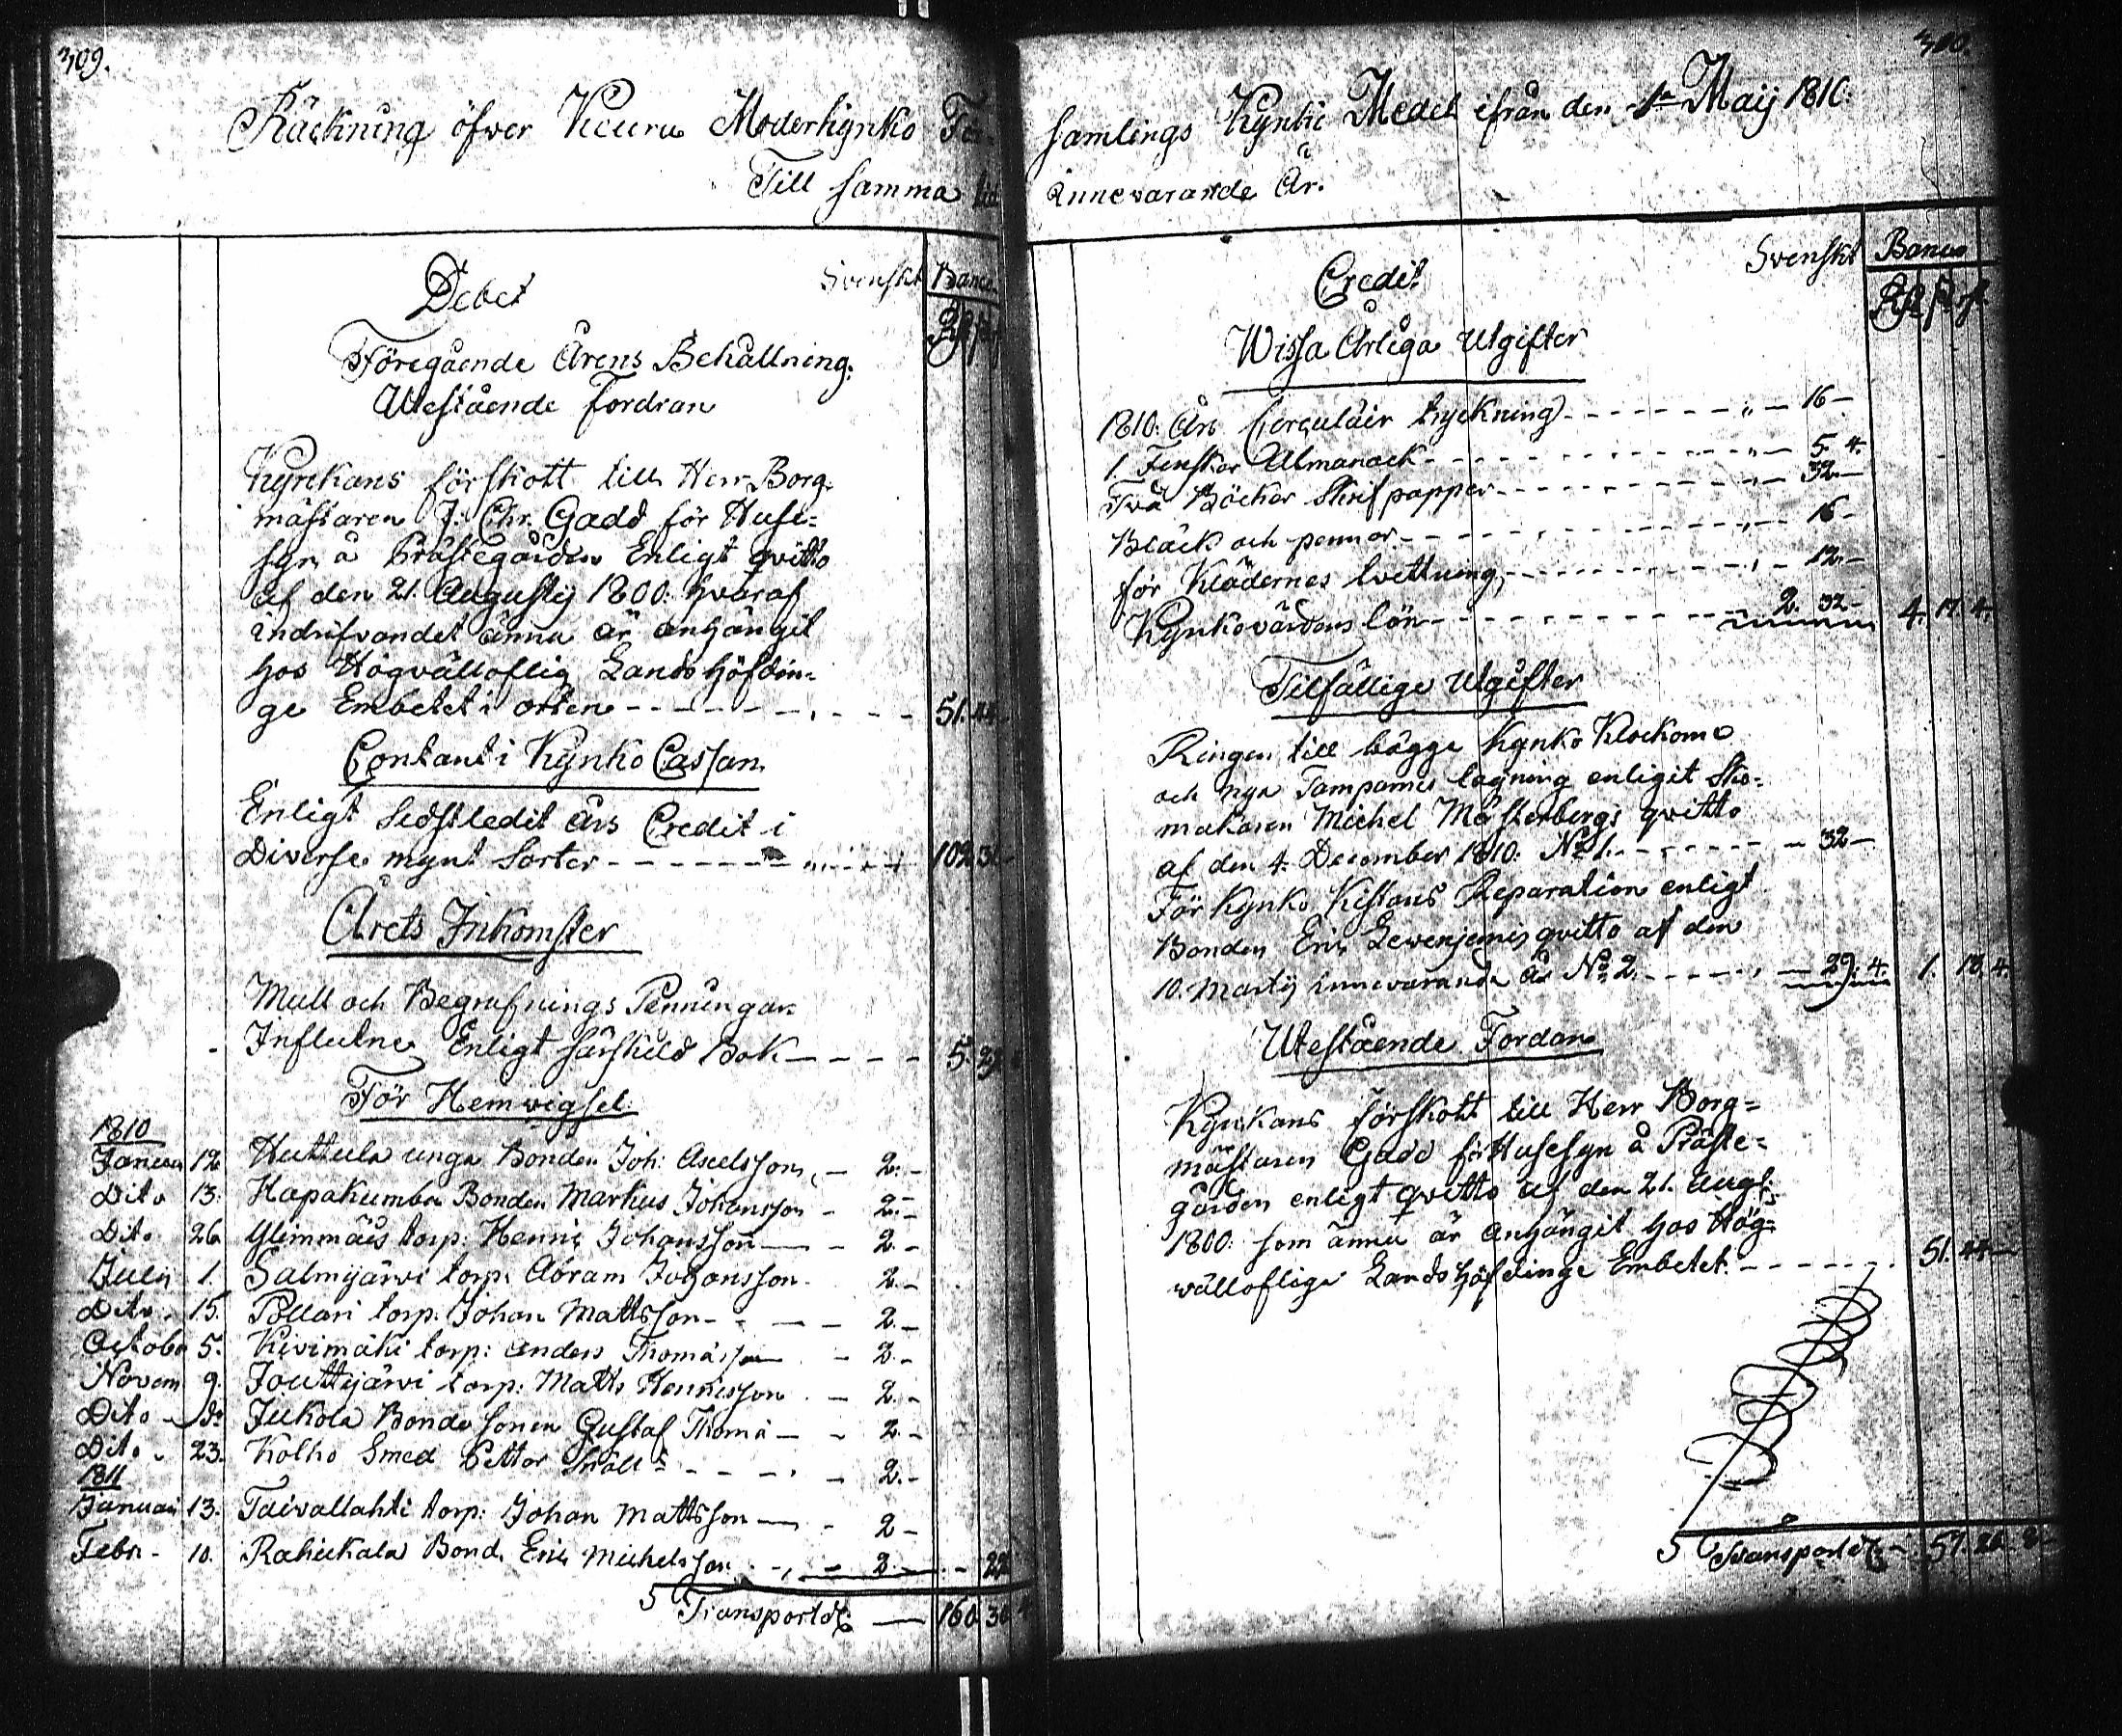 309.
Räckning öfwer Keuru Moderkyrko
Till samma
Debet
Svenskt Banco
Föregående Årens Behållning.
Utestående Fordran
Kyrkans förskott till Herr Borg-
mästaren J. Chr. Gadd för Huse-
syn å Prästegården Enligt qvitto
af den 21. Augustij 1800. hvaraf
indrifvandet ännu är anhängit
hos Högvälloflig Landshöfdin-
ge Embetet i orten 51. 44
Contant i Kyrko Cassan
Enligt Sidstledit års Credit i
Diverse mynt Sorter 102
Årets Inkomster
Mull och Begrafnings Penningar
Influtne Enligt särskild Bok 5.
För Hemvigsel.
1810
Januari 12 Huttula unga Bonden Joh: Axelsson 2.
Dito 13. Hapakumbu Bonden Markus Johansson 2.
Dito 26 torp: Henric Johansson 2.
Julij 1. Salmijärwi torp: Abram Johansson 2.
Dito 15. Pollari torp. Johan Mattsson 2.
October 5. Kivimäki torp: Anders Thomasson 2.
Novem 9. Jouttijärwi torp: Matts Henricsson 2.
Dito Jukola Bonde sonen Gustaf Thoma 2.
Dito 23. Kolho Smed Petter Snäll 2.
1811
Januari 13. Taivallahti torp: Johan Mattsson 2
Febr. 10. Rahukala Bond. Eric Michelsson 2.
Transport 160
300.
samlings Kyrko Medel ifrån den 1a Maij 1810.
innevarande År.
Credit
Svenskt Banco
Wissa Årliga Utgifter
1810. Års Circulair tryckning 16
1. Finsker Almanack 5. 4.
Två Böcker Skrif papper 32
Bläck och pennor 16
för Klädernes tvettning 12
Kyrkovärdens lön 2. 32 4. 17. 4.
Tilfällige Utgifter
Ringen till bägge kyrko Klockorne
och nya lagning enligit Sko-
makaren Michel Mästerbergs qvitto
af den 4. December 1810. No 1. 32
För Kyrko Kistans Reparation enligt
Bonden Eric qvitto af den
10. Martij innevarande År No 2. 29. 4. 1. 13. 4.
Utestående Fordan
Kyrkans Förskott till Herr Borg-
mästaren Gadd för Husesyn å Präste-
gården enligt qvitto af den 21. Aug.
1800. som ännu är anhängit hos Hög-
wälloflige Landshöfdinge Embetet. 51. 44
Transport 57. 26. 8